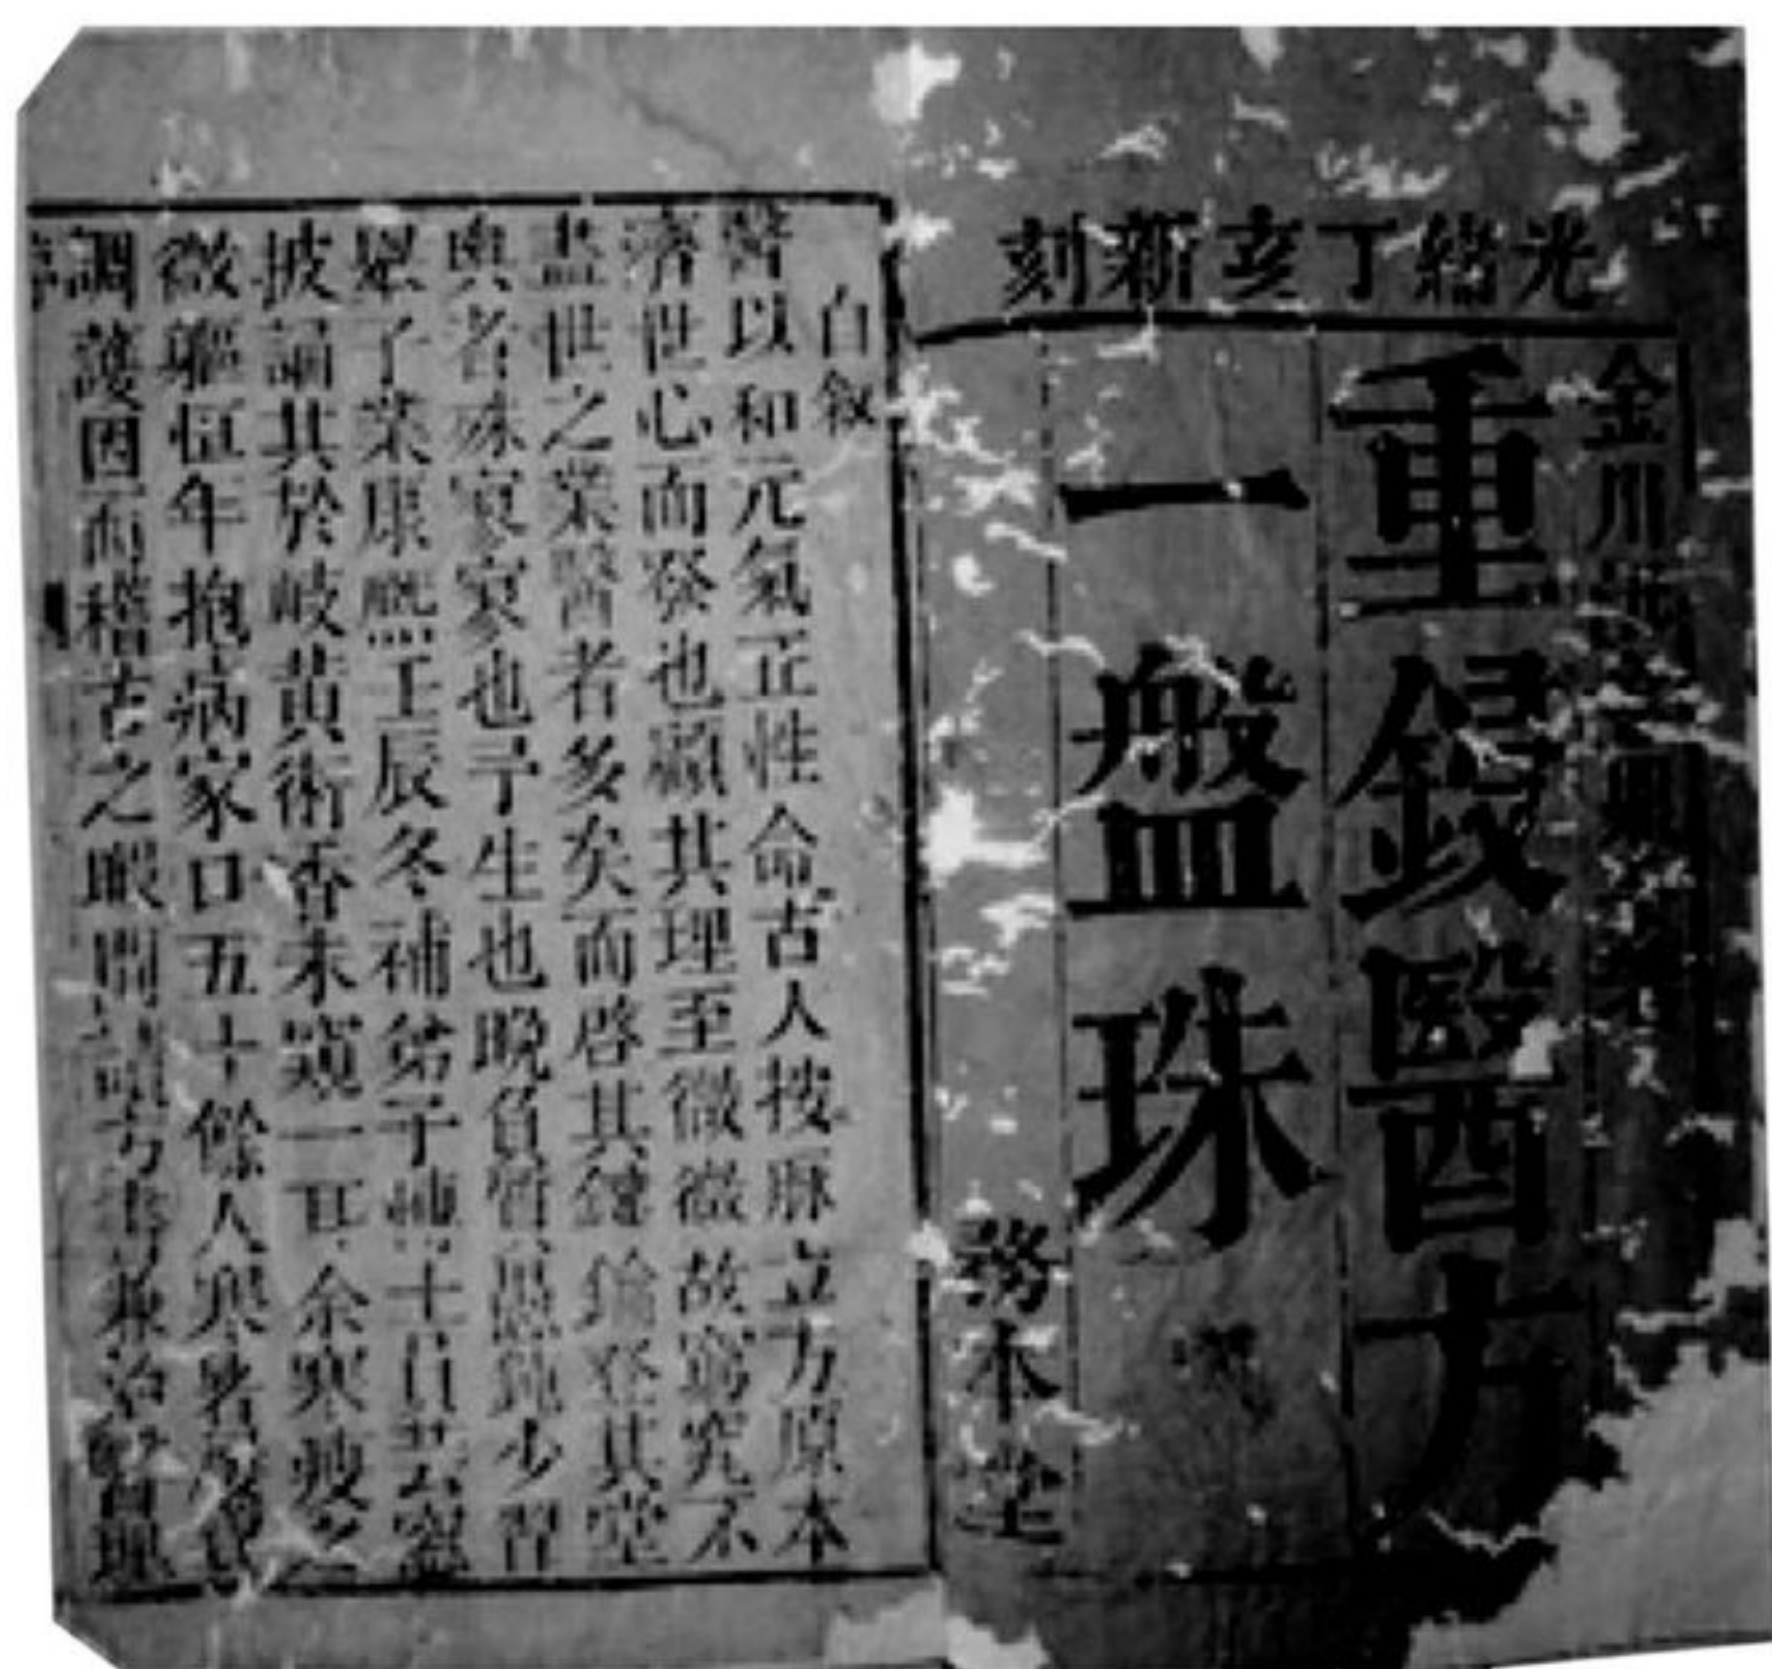 光緒丁亥新刻
金川
重鋟醫方
一盤珠
務本堂
自敘
醫以和元氣正性命古人按脉立方原本
濟世心而發也顧其理至微微故窮究不
盡世之業醫者多矣而啓其鑰登其堂
奥者殊寥寥也予生也晚負質愚鈍少習
舉子業康熈壬辰冬補弟子
披誦其於岐黄術香未窺一耳余寒
微軀恒年抱病家口五十餘人寒暑
調護因而稽古之暇間方書兼治